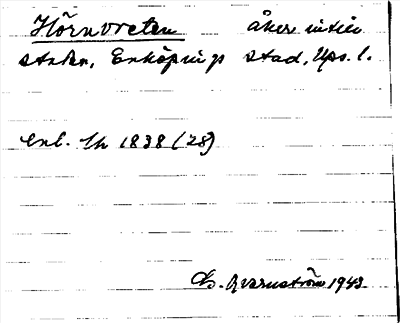 Hörnvreten åker intill
staden, Enköpings stad, Ups. l.
enl. Lh 1838 (28)
G. Qvarnström 1943